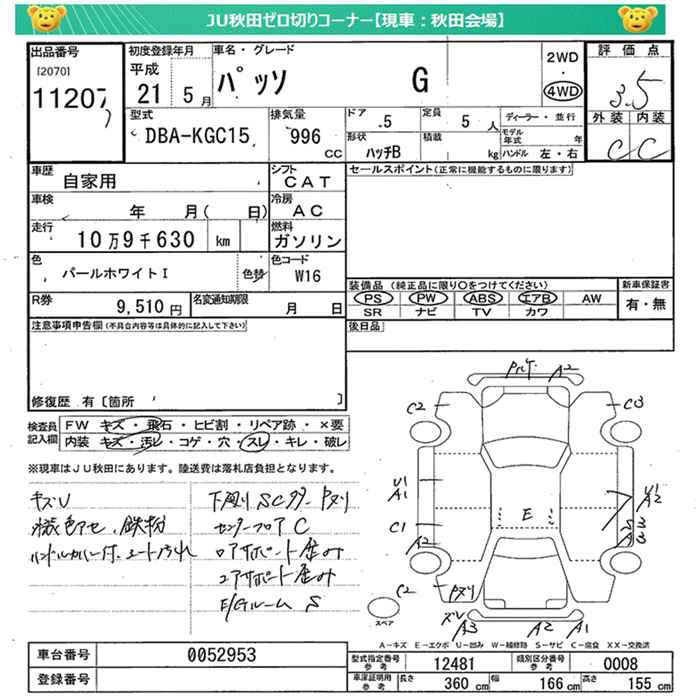 JU秋田ゼロ切りコーナー【現車：秋田会場】
出品番号
[2070]
11207
初度登録年月
平成
21 5月
車名・グレード
パッソ G
2WD
・
4WD
評価点
3.5
外装 内装
C C
型式
DBA-KGC15
排気量
996
CC
ドア
5
定員
5 人
ディーラー・並行
形状
ハッチB
積載
kg
モデル年式 年
ハンドル 左・右
車歴
自家用
シフト
CAT
車検
年 月( 日)
冷房
AC
走行
10万9千630 km
燃料
ガソリン
色
パールホワイトI
色替
色コード
W16
R券
9,510円
名変通知期限
月 日
セールスポイント(正常に機能するものに限ります)
装備品(純正品に限り○をつけてください)
PS PW ABS エアB AW
SR ナビ TV カワ
新車保証書
有・無
後日品
注意事項申告欄(不具合内容等は具体的に記入して下さい)
修復歴 有〔箇所 〕
検査員
記入欄
FW キズ・飛石・ヒビ割・リペア跡・×要
内装 キズ・汚レ・コゲ・穴・スレ・キレ・破レ
※現車はJU秋田にあります。陸送費は落札店負担となります。
キズU
下廻り SCタター Pヌリ
鉄粉
センターフロア C
ロアサポート歪み
コアサポート歪み
E/Gルーム S
A2
C2
C3
U1
A1
C1
A2
E
S3
A3
C2
Pヌリ
スペア
A3 A2 A1
A-キズ E-エクボ U-凹み W-補修跡 S-サビ C-腐食 XX-交換済
車台番号
0052953
登録番号
型式指定番号
参考
12481
類別区分番号
参考
0008
車庫証明用
参考
長さ
360 cm
幅
166 cm
高さ
155 cm